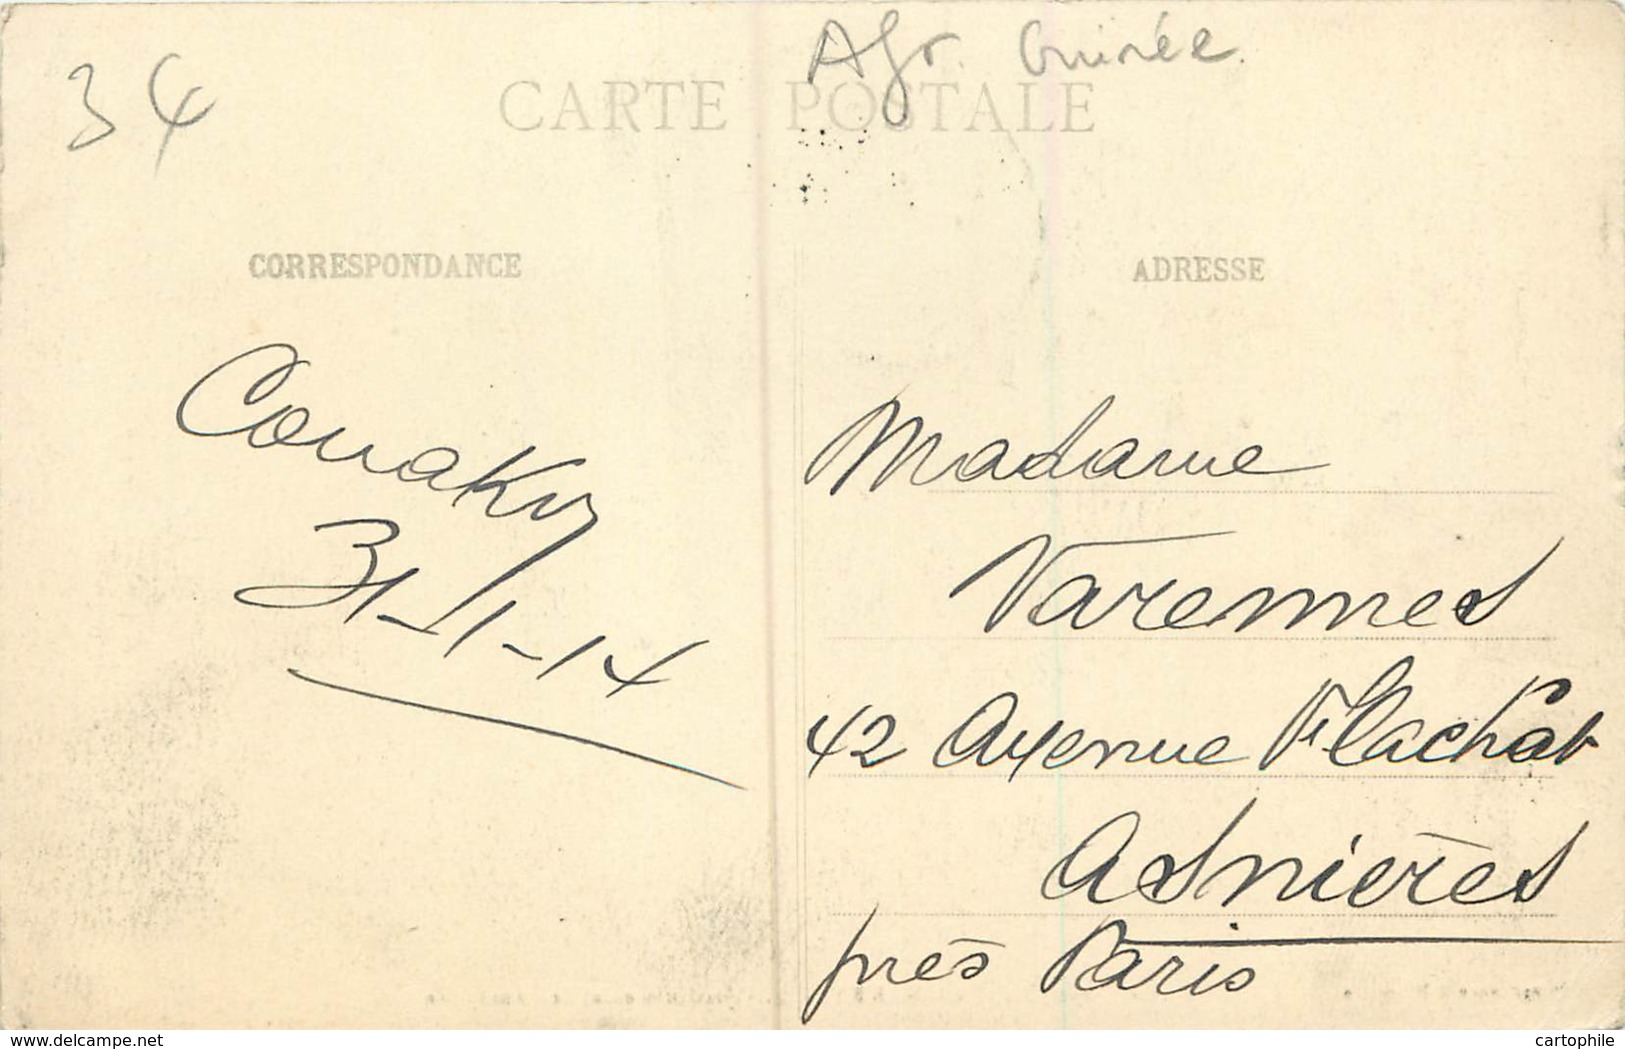 Afr. Guinée.
34
CARTE POSTALE
CORRESPONDANCE
ADRESSE
Conakry
31-1-14
Madame
Varennes
42 Avenue Flachat
Asnières
près Paris
www.delcampe.net
cartophile